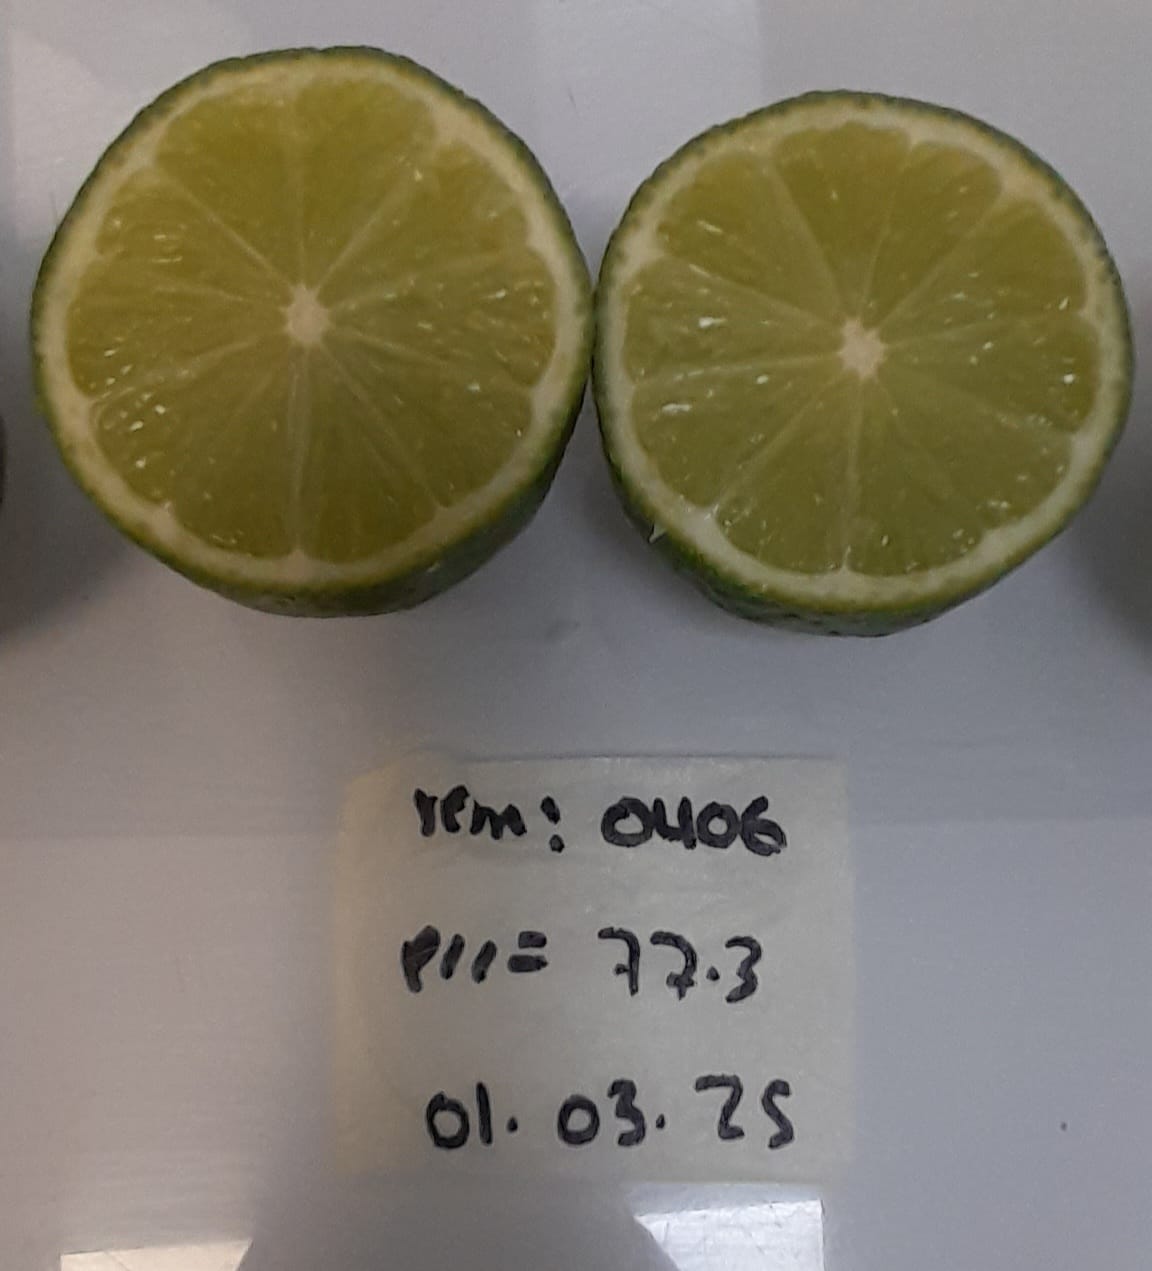 rem: 0406
P11= 77.3
01.03.25